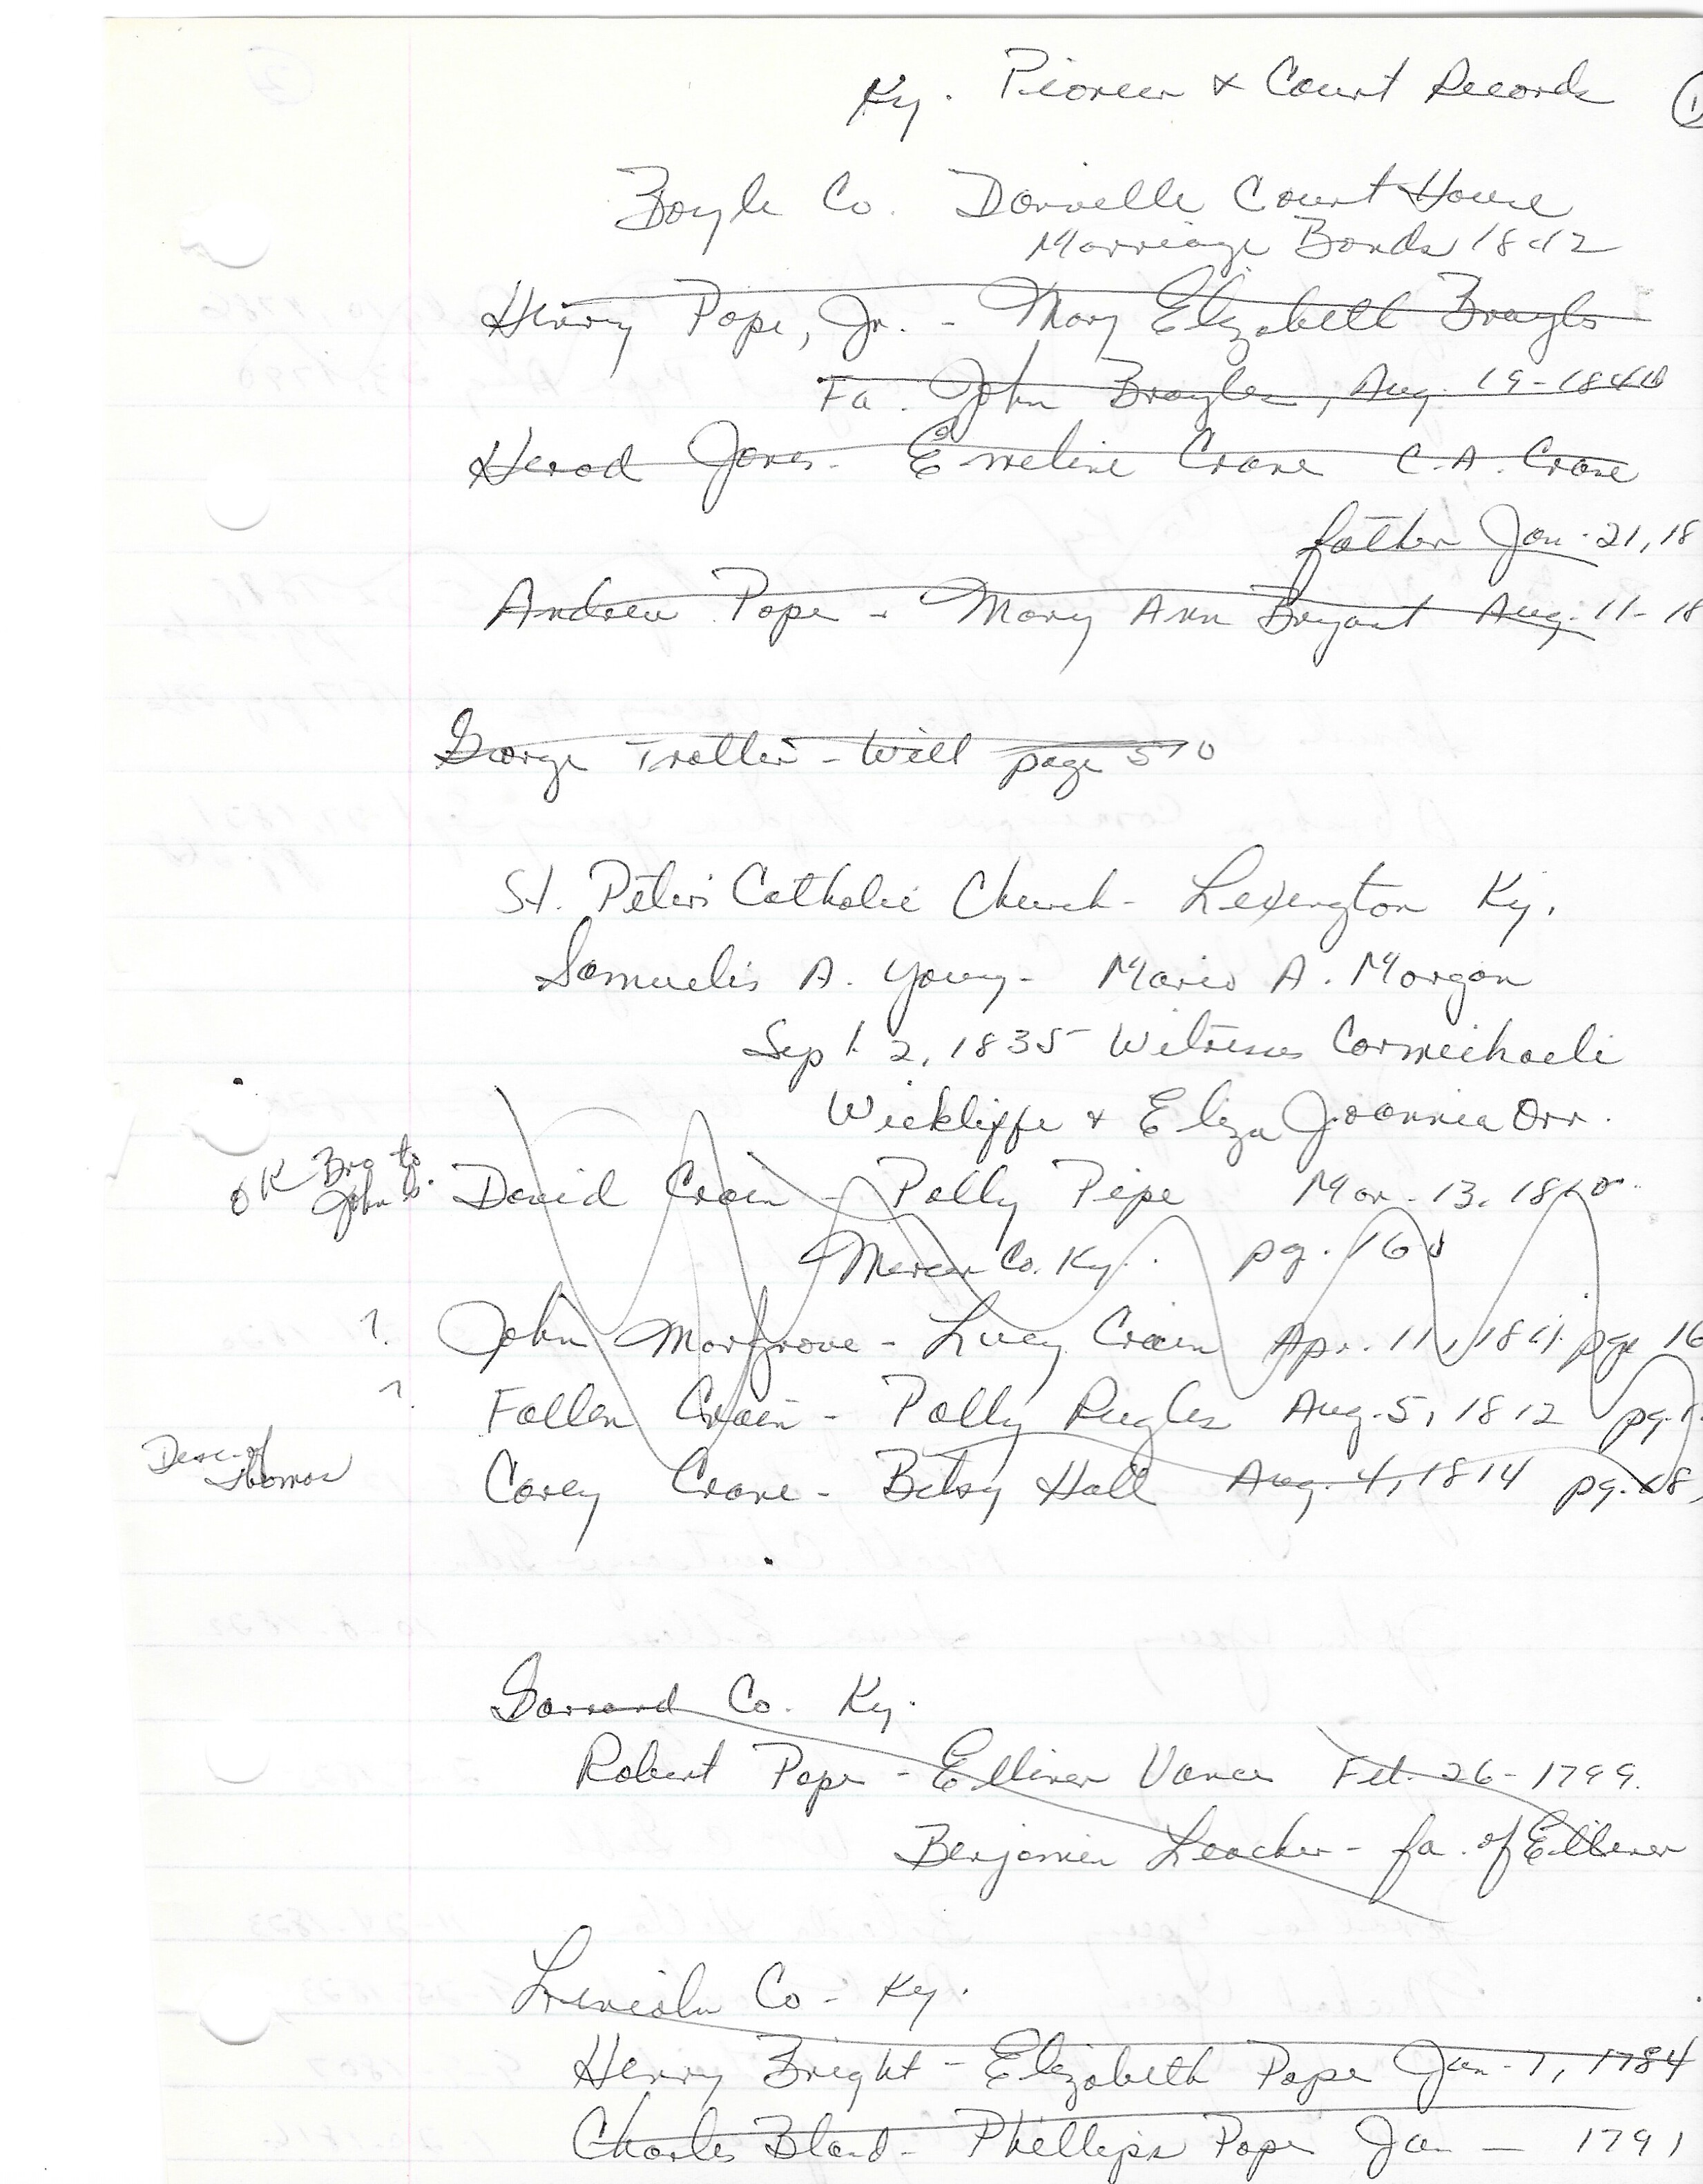 Ky. Pioneer & Court Records 1
Boyle Co. Danville Court House
Marriage Bonds 1842
Henry Pope, Jr. - Mary Elizabeth Brayles
Fa. John Brayles, Aug. 19-184
Herod Jones - Emeline Crane C. A. Crane
father Jan. 21, 18
Andrew Pope - Mary Ann Bryant Aug. 11- 18
George Trotter - Will page 570
St. Peters Catholic Church - Lexington Ky.
Samuelis A. Young - Maria A. Morgan
Sept. 2, 1835 Witness Carmichaeli
Wickliffe & Eliza Joannia Orr.
OK Bro to
John S.
David Crain - Polly Pipe Mar. 13, 1810
Mercer Co. Ky. pg. 16
? John Margrove - Lucy Crain Apr. 11, 1811 pge 16
? Fallen Crain - Polly Rugles Aug. 5, 1812 pg. 1
Desc. of
Thomas
Carey Crane - Betsy Hall Aug. 4, 1814 pg. 18,
Garrard Co. Ky.
Robert Pope - Elliner Vance Feb. 26 - 1799.
Benjamin Leacher - fa. of Elliner
Lincoln Co - Ky.
Henry Bright - Elizabeth Pope Jan - 7, 1784
Charles Bland - Phillipa Pope Jan — 1791